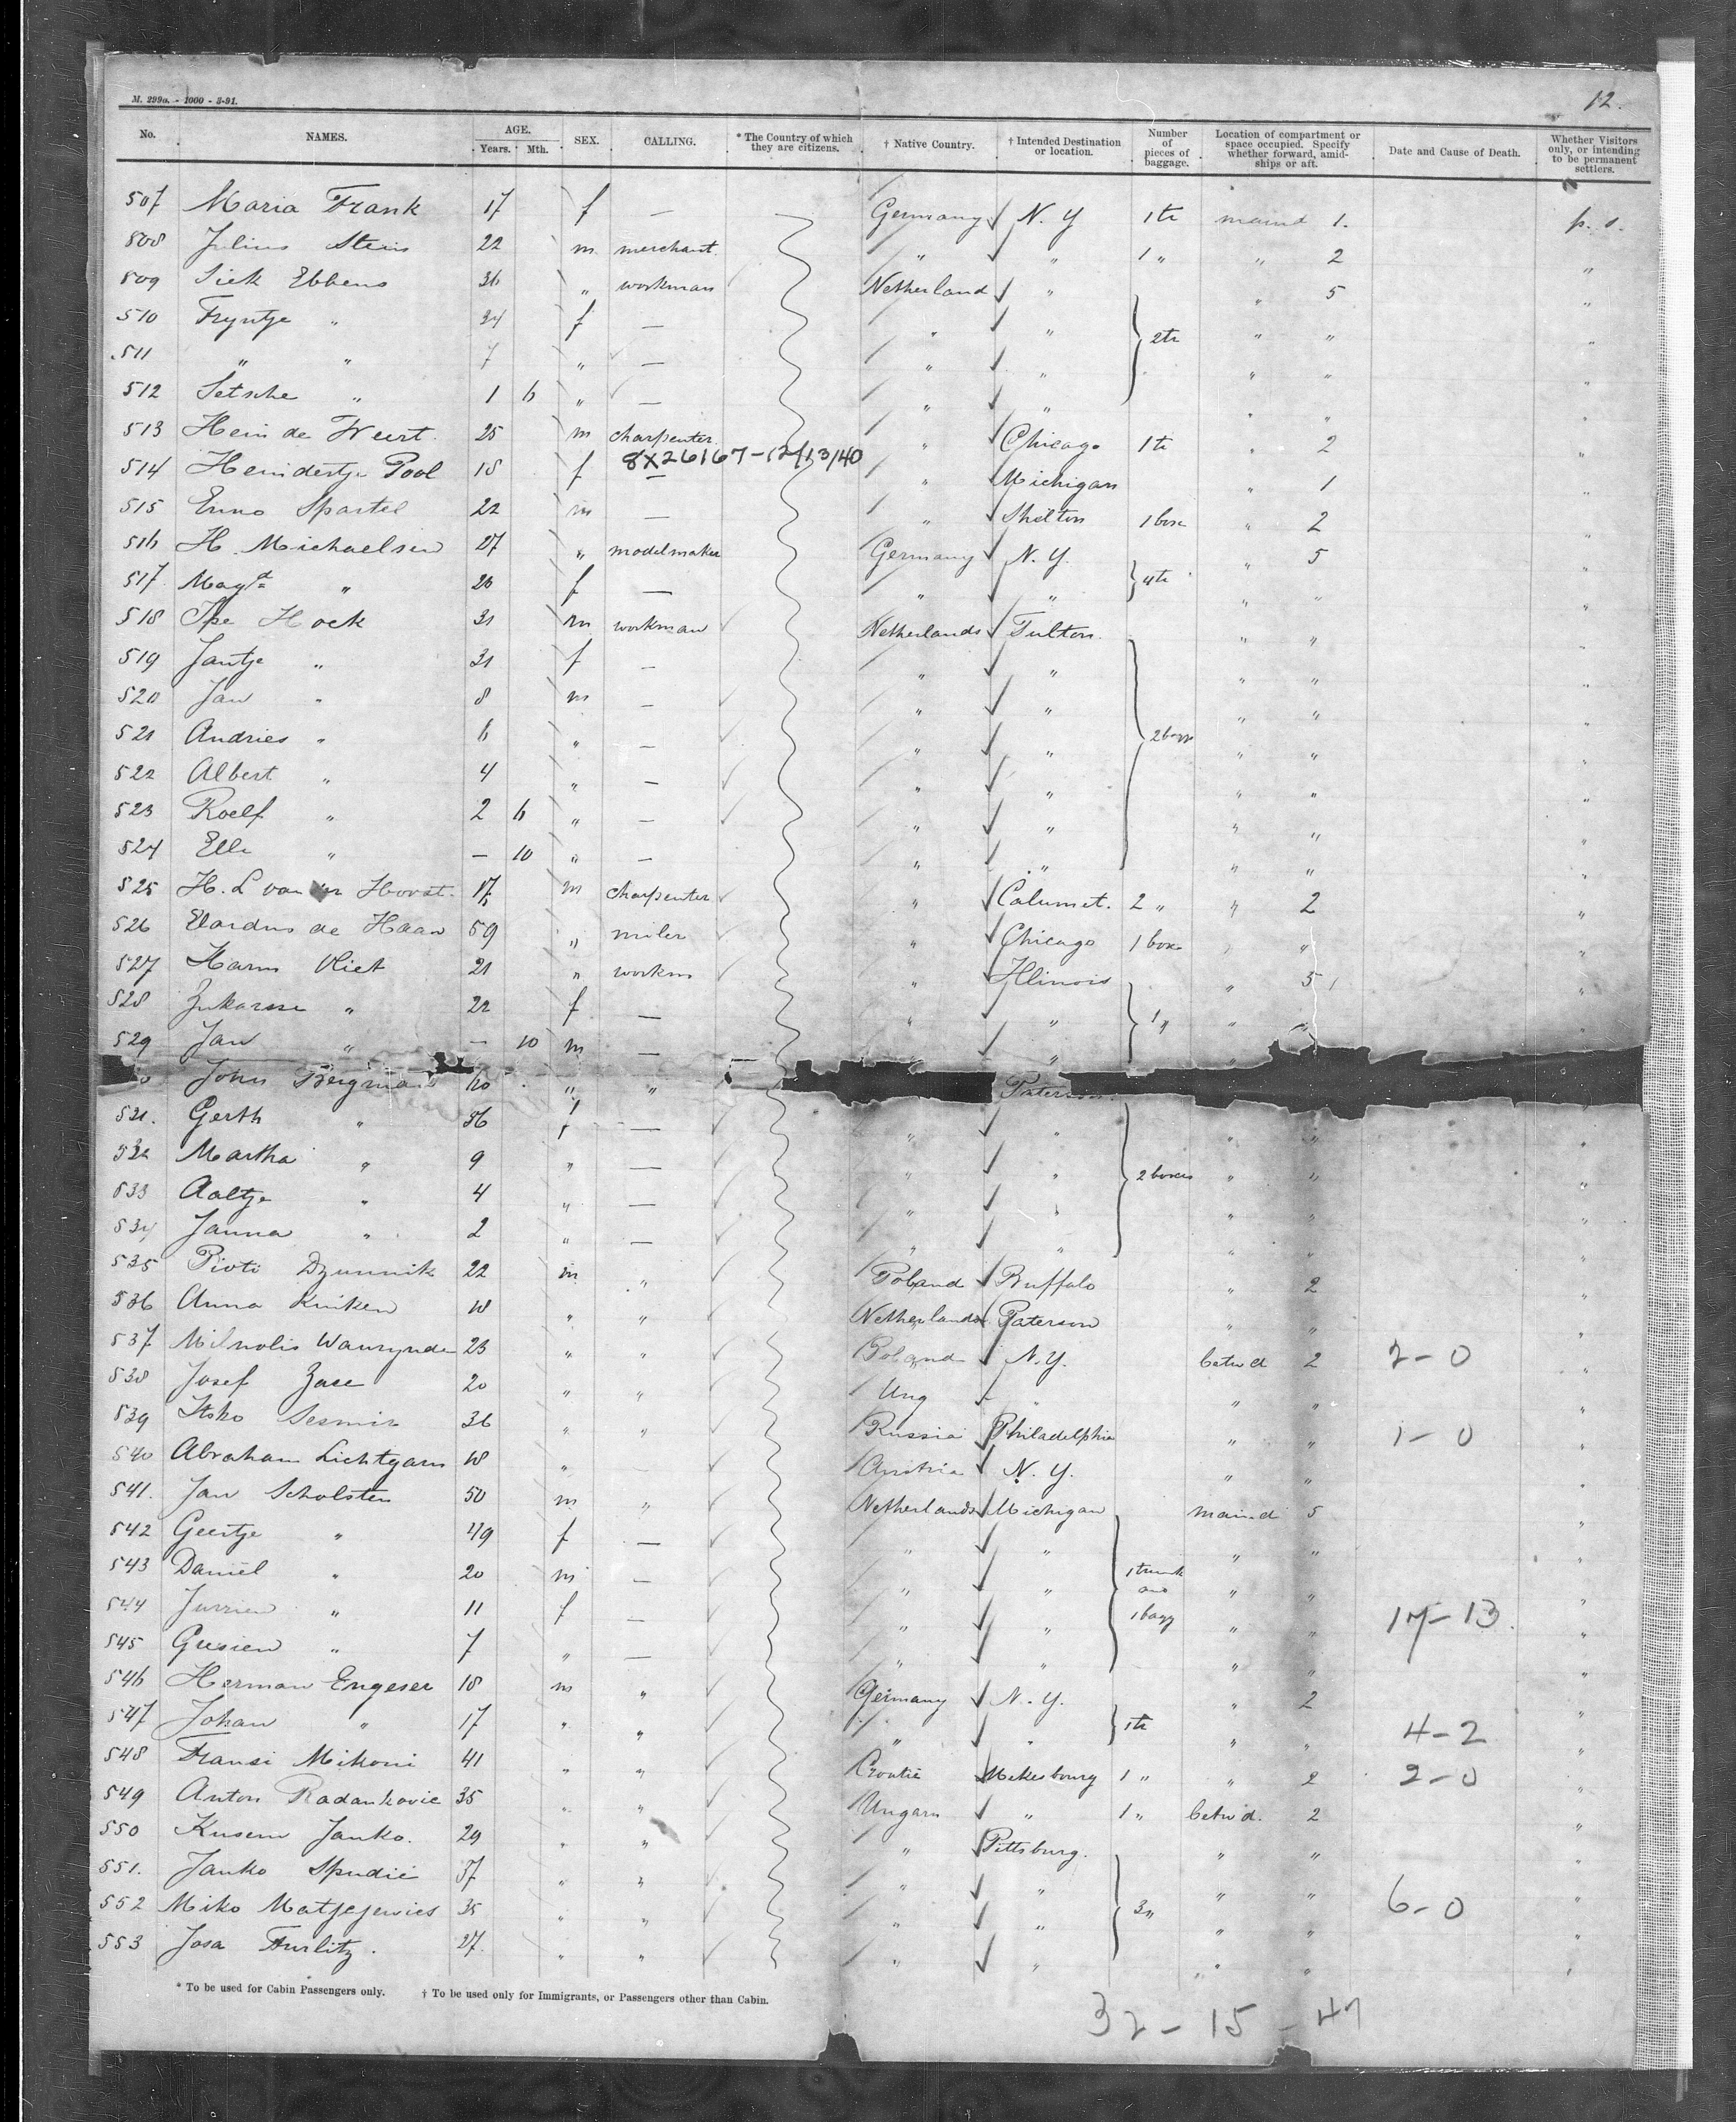 M. 299a. - 1000 - 3-91.
12.
No. NAMES. AGE. Years. Mth. SEX. CALLING. * The Country of which they are citizens. † Native Country. † Intended Destination or location. Number of pieces of baggage. Location of compartment or space occupied. Specify whether forward, amidships or aft. Date and Cause of Death. Whether Visitors only, or intending to be permanent settlers.
507 Maria Frank 17 f — Germany N. Y 1 tr maind 1. p. s.
508 Julius Stein 22 m. merchant. " " 1 " " 2 "
509 Siek Ebbens 36 " workman Netherland " " 5 "
510 Fryntje " 34 f — " " 2 tr " " "
511 " " 7 " — " " " " "
512 Setsche " 1 6 " — " " " " "
513 Hein de Weert. 25 m charpenter " Chicago 1 tr " 2 "
8X26167-12/13/40
514 Heindertje Pool 18 f — " Michigan " 1 "
515 Enno Spartel 22 m — " Shelton 1 box " 2 "
516 H. Michaelsen 27 " modelmaker Germany N. Y. " 5 "
517. Magd " 26 f — " " 4 tr " " "
518 Ipe Hoek 31 m workman Netherlands Fulton. " " "
519 Jantje " 31 f — " " " " "
520 Jan " 8 m — " " " " "
521 Andries " 6 " — " " 2 bagg " " "
522 Albert " 4 " — " " " " "
523 Roelf " 2 6 " — " " " " "
524 Elle " — 10 " — " " " " "
525 H. L van Horst. 17 m charpenter " Calumet. 2 " " 2 "
526 Elardus de Haan 59 " miler " Chicago 1 box " " "
527 Harm Vliet 21 " workm " Illinois " 5 "
528 " 22 f — " " 1 " " " "
529 Jan " — 10 m — " " "
John Bergman 40 " " Paterson
531. Gerth " 36 f — " " " " "
532 Martha " 9 " — " " 2 boxes " " "
533 Aaltje " 4 " — " " " " "
534 Janna " 2 " — " " " " "
535 Pioti Dzunnik 22 m " Poland Buffalo " 2 "
536 Anna Kniken 18 " " Netherlands Paterson " " "
537 23 " " Poland N. Y. betwd 2 2-0 "
538 Josef Zace 20 " " Ung " " " "
539 Itsko 36 " " Russia Philadelphia " " 1-0 "
540 Abraham Lichtgarn 18 " Austria N. Y. " " "
541. Jan Scholsten 50 m " Netherlands Michigan maind 5 "
542 Geertje " 49 f — " " " " "
543 Daniël " 20 m — " " 1 trunk and " " "
544 Jurrien " 11 f — " " 1 bagg " " 17-13. "
545 Gresien " 7 " — " " " " "
546 Herman Engeser 18 m " Germany N. Y. " 2 "
547 Johan " 17 " " " " 1 tr " " 4-2 "
548 Fransi Mikoni 41 " " Croatie Mekesbourg 1 " " 2 2-0 "
549 Anton Radankovic 35 " " Ungarn " 1 " betwd. 2 "
550 Kusem Janko. 29 " " " Pittsburg. " " "
551. Janko Spudic 37 " " " " " " "
552 Miko Matjejevics 35 " " " " 3 " " " 6-0 "
553 Josa Furlitz. 27. " " " " " " "
* To be used for Cabin Passengers only. † To be used only for Immigrants, or Passengers other than Cabin.
32 - 15 - 47